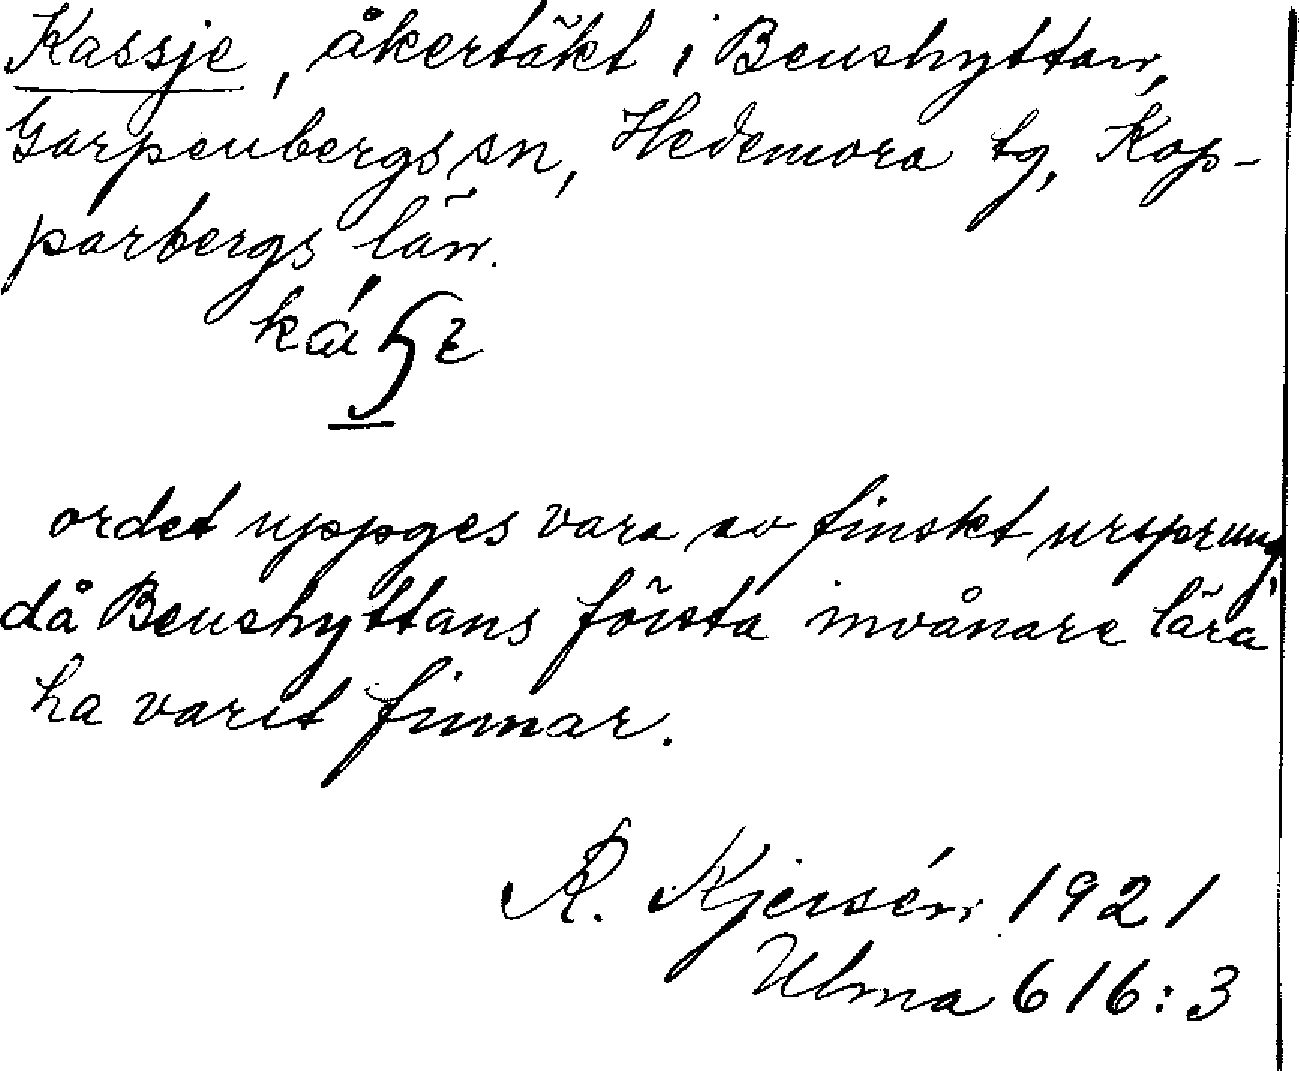 Kassje, åkertäkt i Benshyttan,
Garpenbergs sn, Hedemora tg, Kop-
parbergs län.
ordet uppges vara av finskt ursprung,
då Benshyttans första invånare lära
ha varit finnar.
R. Kjersén 1921
Ulma 616:3